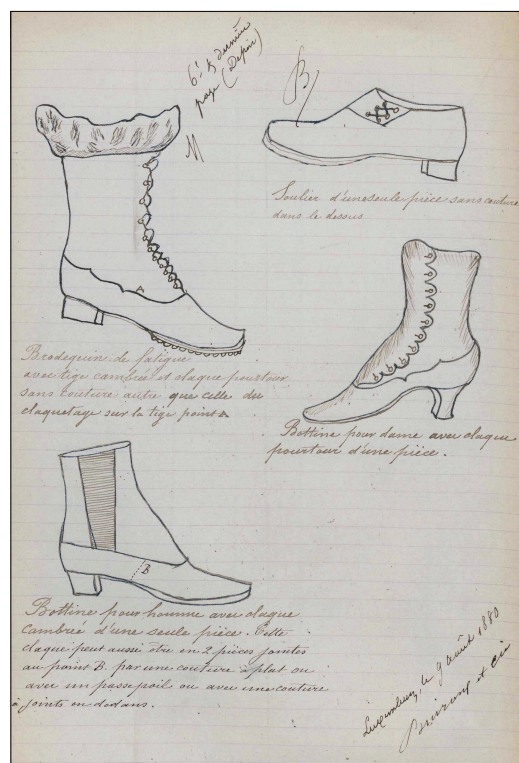 6e & dernière
page (Depoir)
B
M
Soulier d'une seule pièce sans couture
dans le dessus
A
Brodequin de fatigue
avec tige cambrée et claque pourtour
sans couture autre que celle du
claquetage sur la tige point A
Bottine pour dame avec claque
pourtour d'une pièce.
B
Bottine pour homme avec claque
cambrée d'une seule pièce. Cette
claque peut aussi être en 2 pièces jointes
au point B. par une couture à plat ou
avec un passepoil ou avec une couture
à joints en dedans.
Luxembourg, le 9 août 1880
et cie